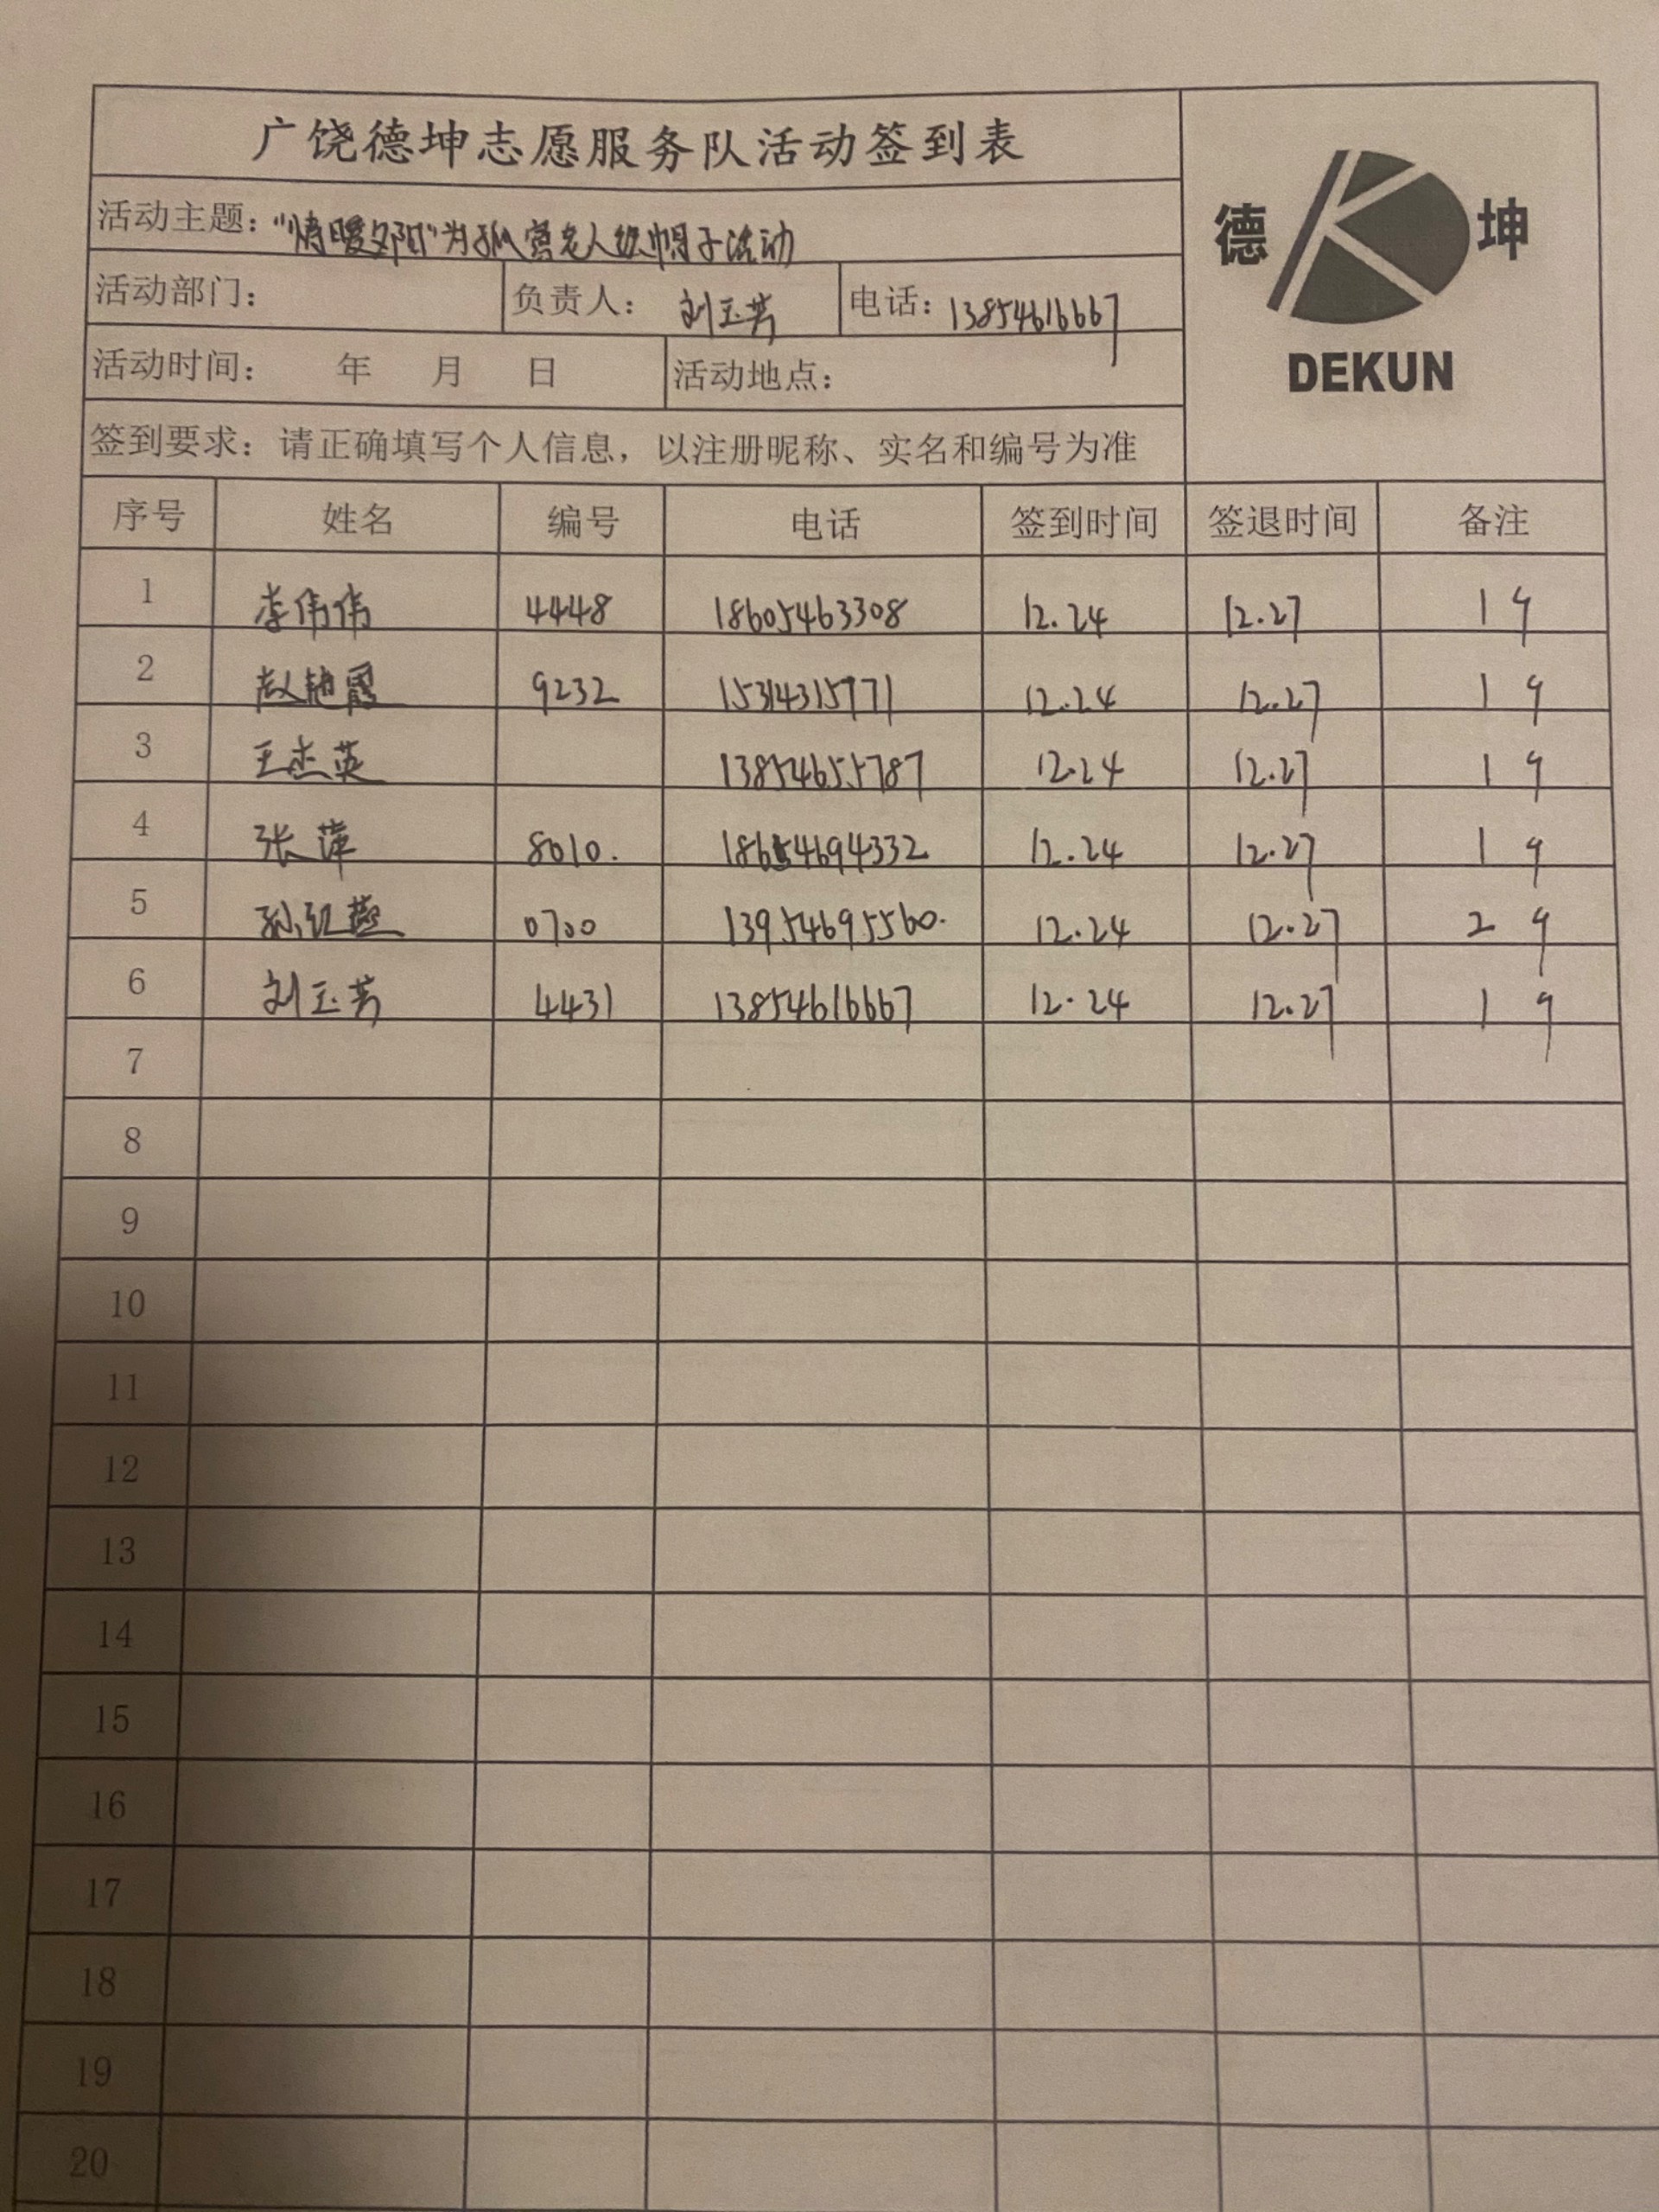 广饶德坤志愿服务队活动签到表
德 坤
DEKUN
活动主题："情暖夕阳"为孤寡老人织帽子活动
活动部门： 负责人：刘玉芳 电话：13854616667
活动时间： 年 月 日 活动地点：
签到要求：请正确填写个人信息，以注册昵称、实名和编号为准
序号 姓名 编号 电话 签到时间 签退时间 备注
1 李伟伟 4448 18605463308 12.24 12.27 1 9
2 赵艳霞 9232 15314315771 12.24 12.27 1 9
3 王杰英 13854655787 12.24 12.27 1 9
4 张萍 8010. 18654694332 12.24 12.27 1 9
5 孙红燕 0700 13954695560. 12.24 12.27 2 9
6 刘玉芳 4431 13854616667 12.24 12.27 1 9
7
8
9
10
11
12
13
14
15
16
17
18
19
20